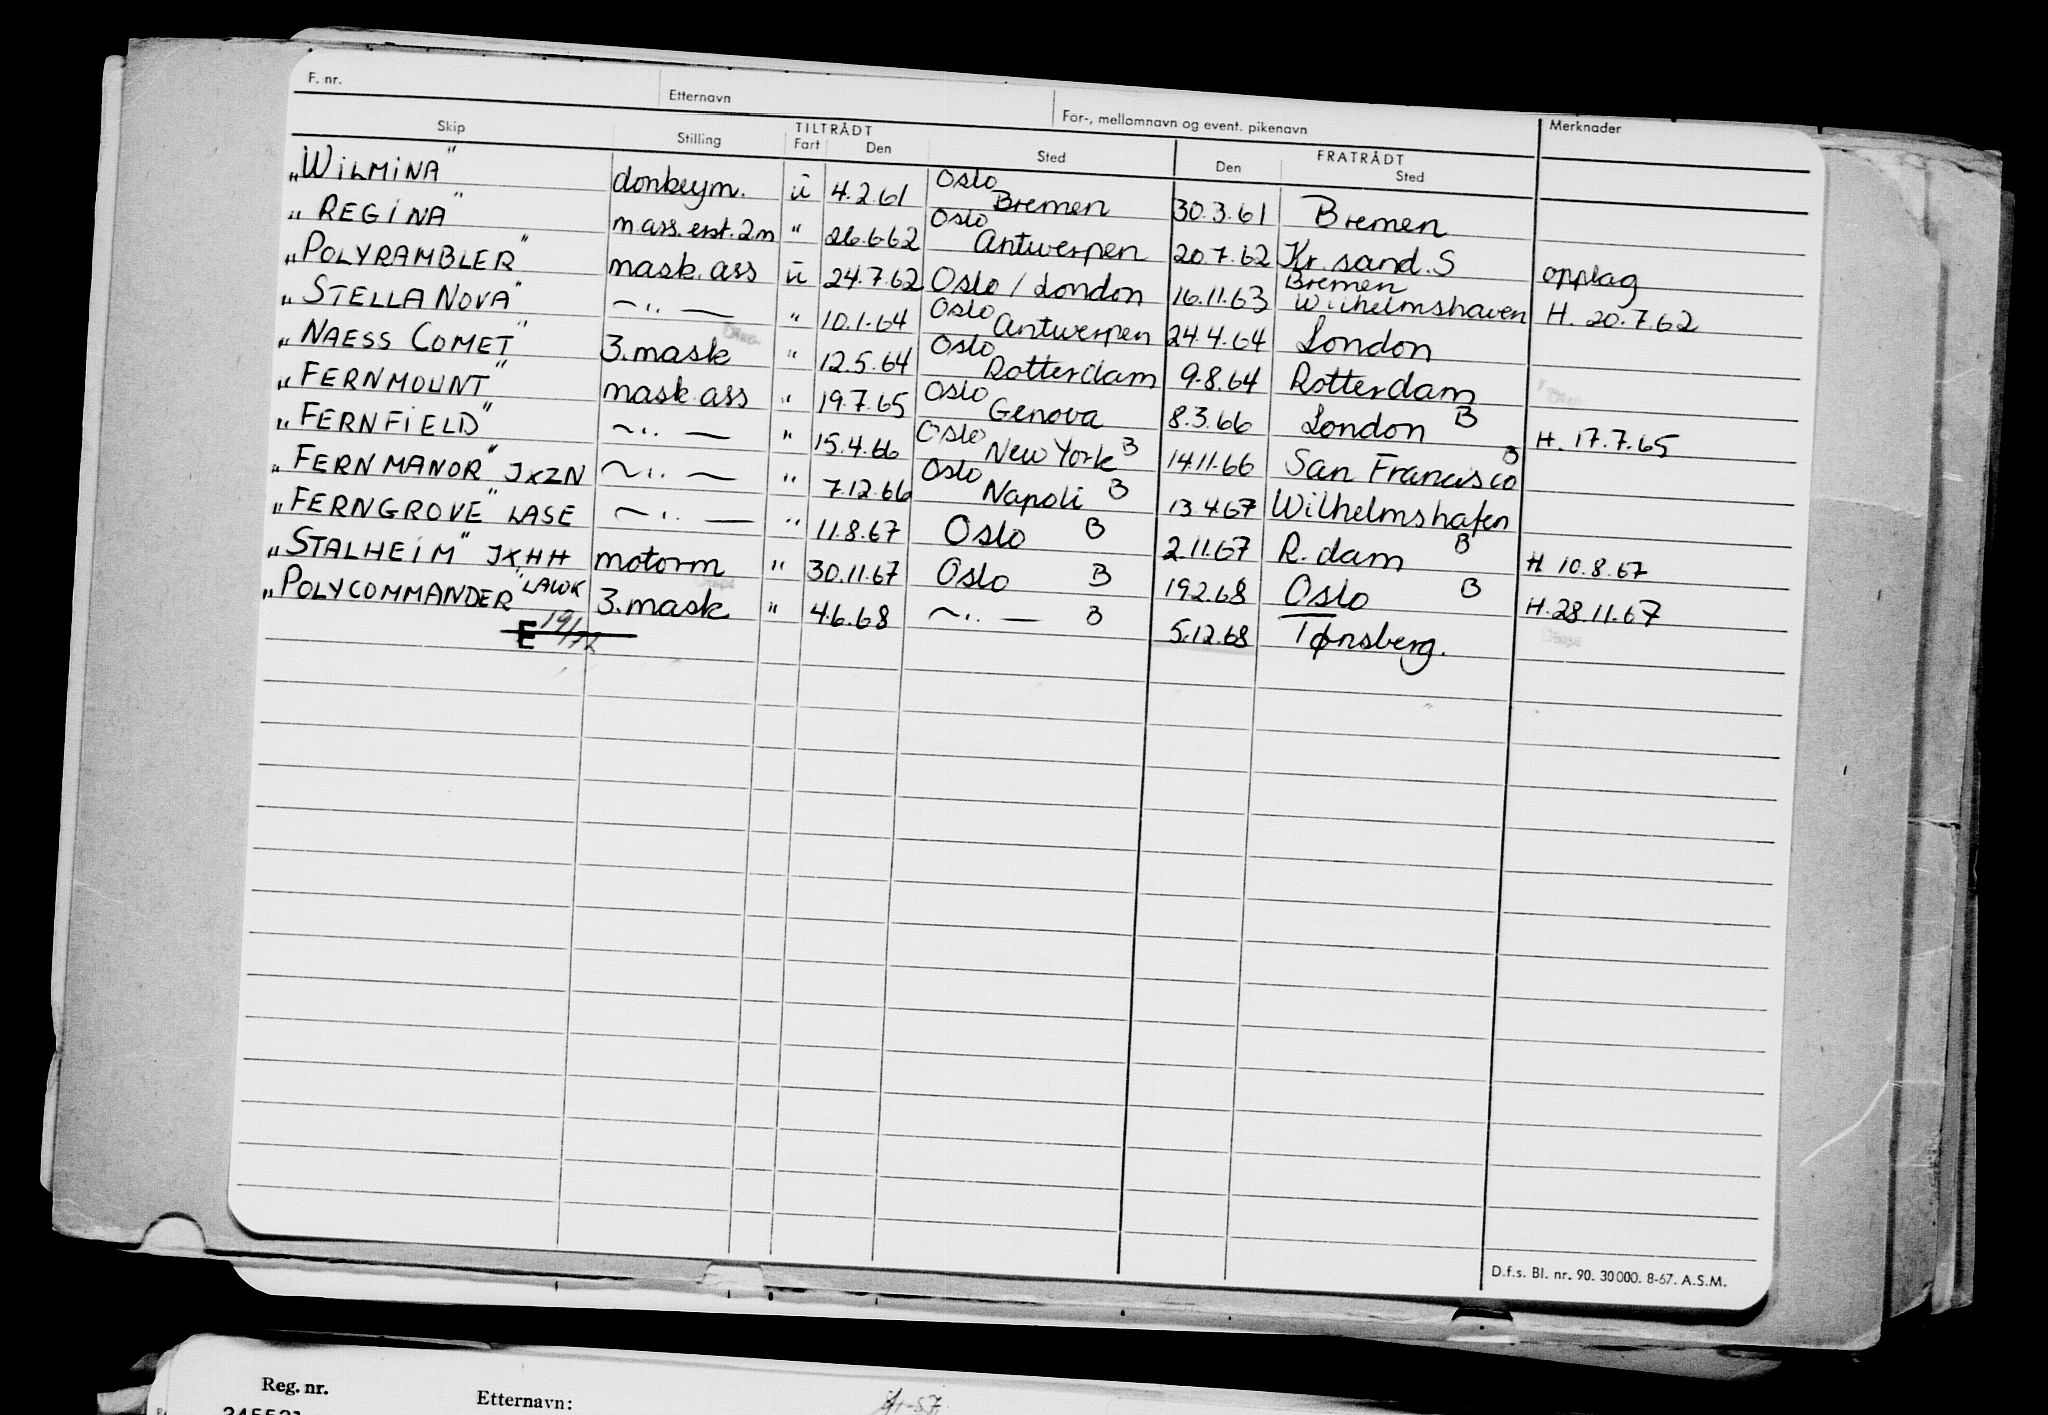 F. nr. Etternavn For-, mellomnavn og event. pikenavn Merknader
Skip Stilling TILTRÅDT Fart Den Sted FRATRÅDT Den Sted
„WILMINA" donkeym. u 4.2.61 Oslo Bremen 30.3.61 Bremen
„REGINA" mass. est. 2m " 26.6.62 Oslo Antwerpen 20.7.62 Kr. sand. S opplag
„POLYRAMBLER" mask. ass u 24.7.62 Oslo / London 16.11.63 Bremen Wilhelmshaven H. 20.7.62
„STELLA NOVA" ~ ·· — " 10.1.64 Oslo Antwerpen 24.4.64 London
„NAESS COMET" 3. mask " 12.5.64 Oslo Rotterdam 9.8.64 Rotterdam
„FERNMOUNT" mask. ass " 19.7.65 Oslo Genova 8.3.66 London B H. 17.7.65
„FERNFIELD" ~ ·· — " 15.4.66 Oslo New York B 14.11.66 San Francisco B
„FERNMANOR" JXZN ~ ·· — " 7.12.66 Oslo Napoli B 13.4.67 Wilhelmshafen
„FERNGROVE" LASE ~ ·· — " 11.8.67 Oslo B 2.11.67 R. dam B H 10.8.67
„STALHEIM" JXHH motorm " 30.11.67 Oslo B 19.2.68 Oslo B H. 28.11.67
„POLYCOMMANDER" LAWK 3. mask " 4.6.68 ~ ·· — B 5.12.68 Tønsberg.
E 19/12
D.f.s. Bl. nr. 90. 30 000. 8-67. A.S.M.
Reg. nr. Etternavn: